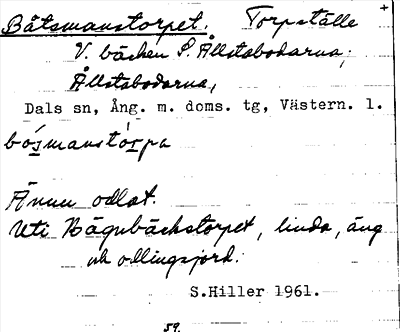 Båtsmanstorpet. Torpställe +
V. bäcken S. Ållstabodarna.
Ållstabodarna,
Dals sn, Ång. m. doms. tg, Västern. l.
bósmanstórpa
Ännu odlat.
Uti Bågnbäckstorpet, linda, äng
och odlingsjord.
S.Hiller 1961.
59.